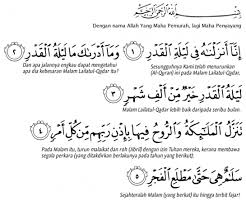 بِسْمِ اللَّهِ الرَّحْمَٰنِ الرَّحِيمِ
Dengan nama Allah Yang Maha Pemurah, lagi Maha Penyayang
إِنَّا أَنزَلْنَاهُ فِي لَيْلَةِ الْقَدْرِ ١ وَمَا أَدْرَاكَ مَا لَيْلَةُ الْقَدْرِ ٢
Sesungguhnya Kami telah menurunkan (Al-Quran) ini pada Malam Lailatul-Qadar,
Dan apa jalannya engkau dapat mengetahui apa dia kebesaran Malam Lailatul-Qadar itu?
لَيْلَةُ الْقَدْرِ خَيْرٌ مِّنْ أَلْفِ شَهْرٍ ٣
Malam Lailatul-Qadar lebih baik daripada seribu bulan.
تَنَزَّلُ الْمَلَائِكَةُ وَالرُّوحُ فِيهَا بِإِذْنِ رَبِّهِم مِّن كُلِّ أَمْرٍ ٤
Pada Malam itu, turun malaikat dan roh (Jibril) dengan izin Tuhan mereka, kerana membawa
segala perkara (yang ditakdirkan berlakunya pada tahun yang berikut).
سَلَامٌ هِيَ حَتَّىٰ مَطْلَعِ الْفَجْرِ ٥
Sejahteralah Malam (yang berkat) itu hingga terbit fajar!